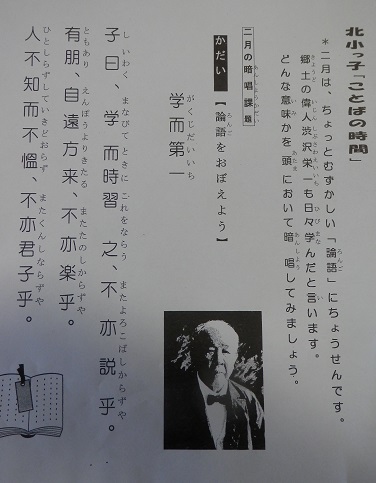 北小っ子「ことばの時間」
＊二月は、ちょっとむずかしい「論語」にちょうせんです。
郷土の偉人渋沢栄一も日々学んだと言います。
どんな意味かを頭において暗唱してみましょう。
二月の暗唱課題
かだい【論語をおぼえよう】
学而第一
子曰、学而時習之、不亦説乎。
有朋、自遠方来、不亦楽乎。
人不知而不慍、不亦君子乎。